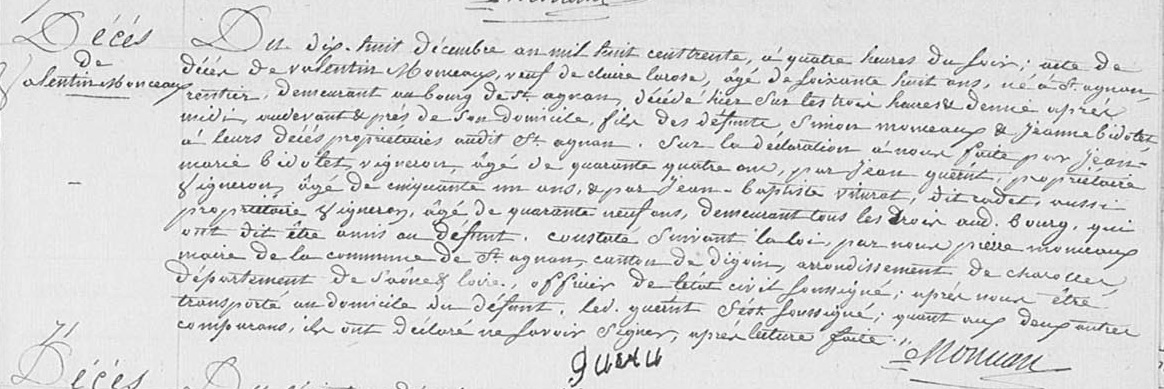 Décès
de
Valentin Monceaux
Du dix-huit décembre an mil huit cent trente, à quatre heures du soir; acte de
décès de valentin Monceaux, veuf de claire larose, âgé de soixante huit ans, né à St. agnan,
rentier, demeurant au bourg de St. agnan, décédé hier sur les trois heures & demie après
midi, audevant & près de son domicile, fils des défunts Simon monceaux & Jeanne bidolet
à leurs décès propriétaires audit St agnan. Sur la déclaration à nous faite par jean-
marie bidolet, vigneron, âgé de quarante quatre ans, par jean guérit, propriétaire
vigneron, âgé de cinquante un ans, & par Jean-baptiste viturat, dit cadet, aussi
propriétaire vigneron, âgé de quarante neuf ans, demeurant tous les trois aud. bourg, qui
ont dit être amis au défunt. constaté suivant la loi, par nous pierre monceaux
maire de la commune de St agnan, canton de digoin, arrondissement de charolles
département de Saône & loire, officier de l'état civil soussigné; après nous être
transporté au domicile du défunt. led. guérit s'est soussigné; quant aux deux autres
comparans, ils ont déclaré ne savoir signer, après lecture faite.
Décès